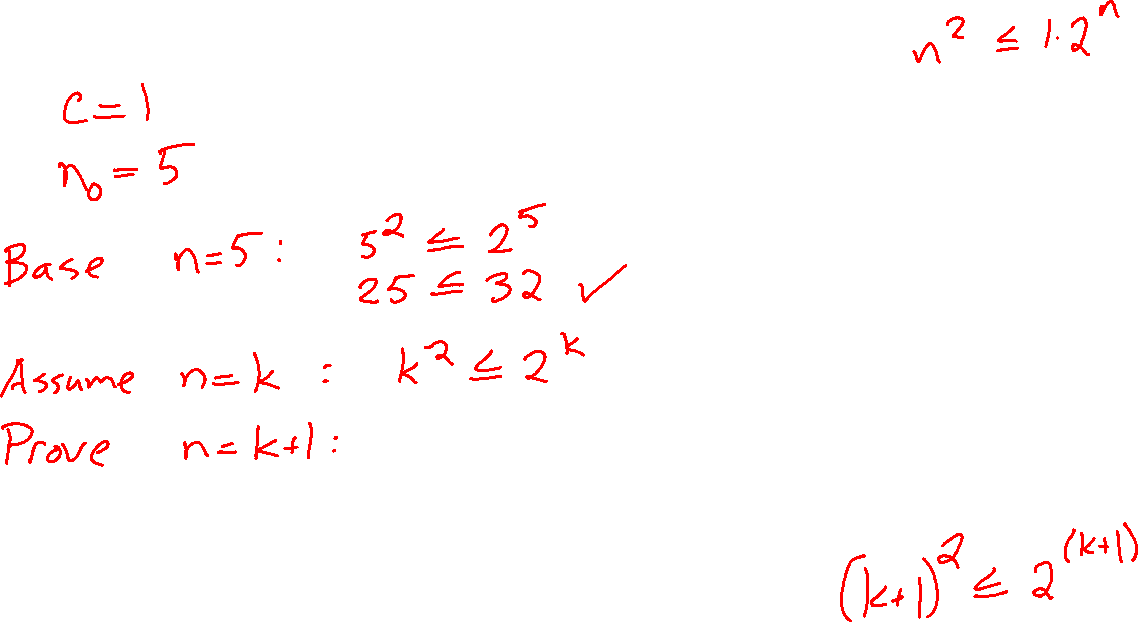 n² ≤ 1·2ⁿ
c = 1
n₀ = 5
Base n=5: 5² ≤ 2⁵
25 ≤ 32 ✓
Assume n=k : k² ≤ 2ᵏ
Prove n=k+1:
(k+1)² ≤ 2⁽ᵏ⁺¹⁾